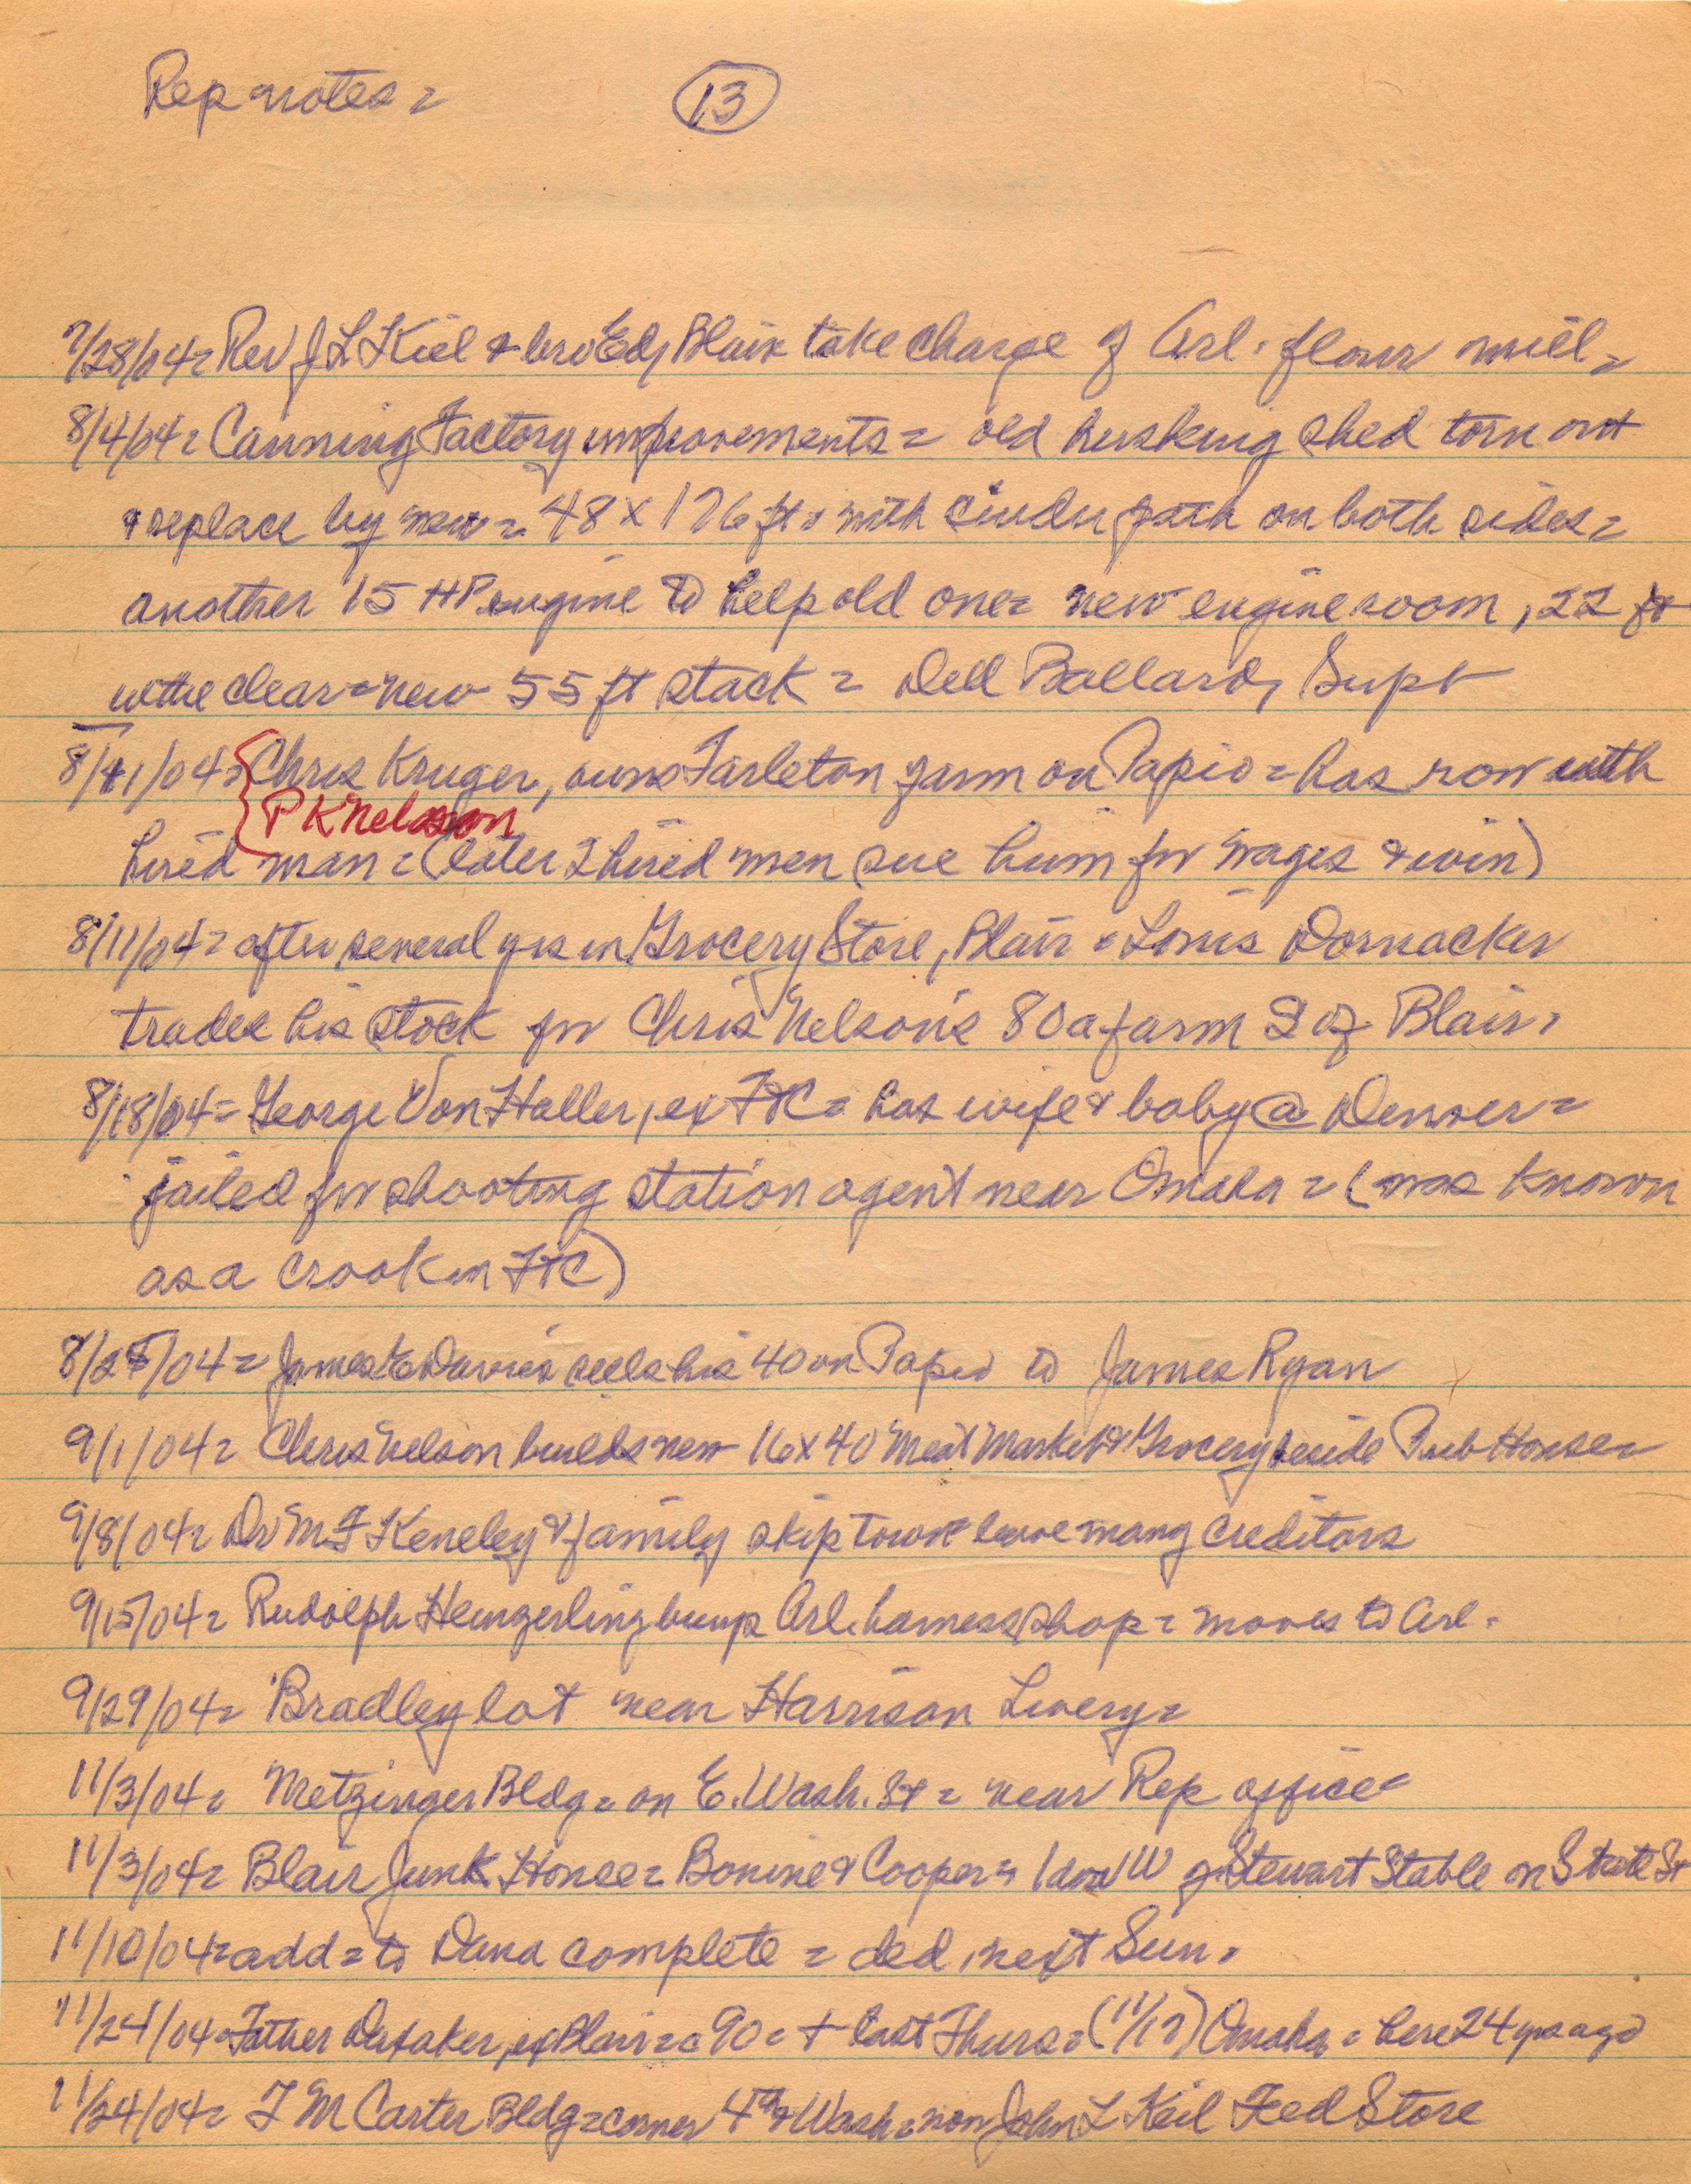 Rep notes =
13
7/28/04= Rev J L Kiel & bro Ed, Blair take charge of Arl. flour mill =
8/4/04= Canning Factory improvements = old husking shed torn out
& replace by new = 48 x 176 ft. with cinder path on both sides =
another 15 HP engine to help old one= new engine room, 22 ft
in the clear = new 55 ft stack = Dell Ballard, Supt
8/11/04= Chris Kruger, owns Tarleton farm on Papio = has row with
P K Nelson
hired man = (later 2 hired men sue him for wages & win)
8/11/04= after several yrs in Grocery Store, Blair = Louis Dornacker
trades his stock for Chris Nelson's 80a farm S of Blair.
8/18/04= George Von Haller, ex FtC = has wife & baby @ Denver =
jailed for shooting station agent near Omaha = (was known
as a crook in FtC)
8/25/04= James E Davies sells his 40 on Papio to James Ryan
9/1/04= Chris Nelson builds new 16x40 Meat Market & Grocery beside Pub House=
9/8/04= Dr M F Keneley & family skip town leave many creditors
9/15/04= Rudolph Hengerling buys Arl. harness shop = moves to Arl.
9/29/04= Bradley lot near Harrison Livery=
11/3/04= Metzinger Bldg = on E. Wash. St = near Rep office=
11/3/04= Blair Junk House= Bonine & Cooper = 1 door W of Stewart Stable on State St
11/10/04= add= to Dana complete = ded. next Sun.
11/24/04= Father ex Blair = 90 = + last Thurs= (11/17) Omaha = here 24 yrs ago
11/24/04= F M Carter Bldg = corner 4th & Wash = now John L Keil Feed Store